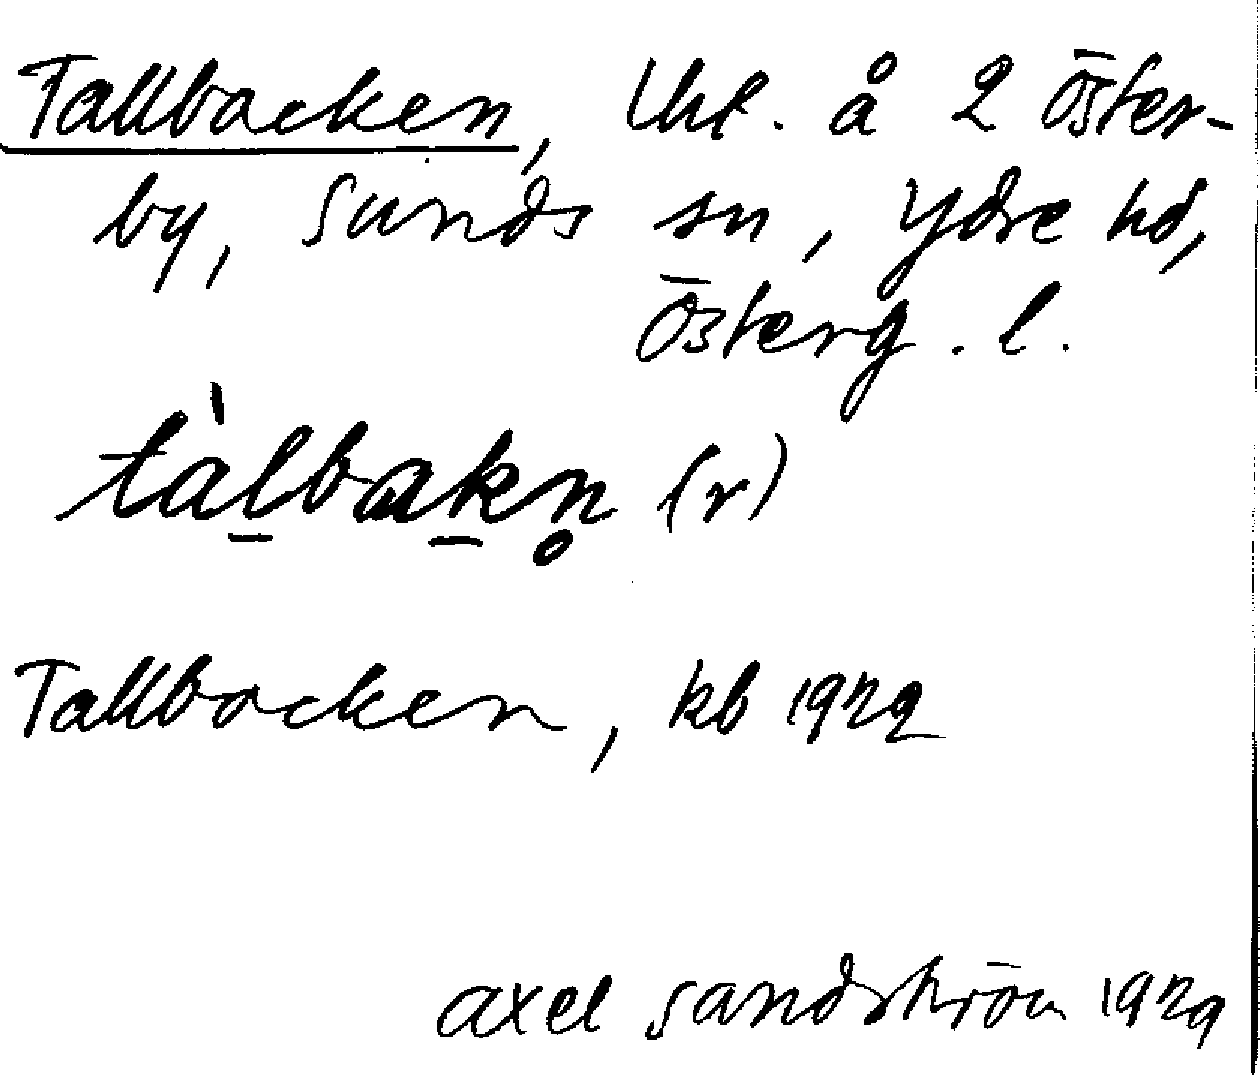 Tallbacken, lht. å 2 Öster-
by, Sunds sn, Ydre hd,
Österg. l.
tàl̠bak̠n̥ (r)
Tallbacken, kb 1929
Axel Sandström 1929